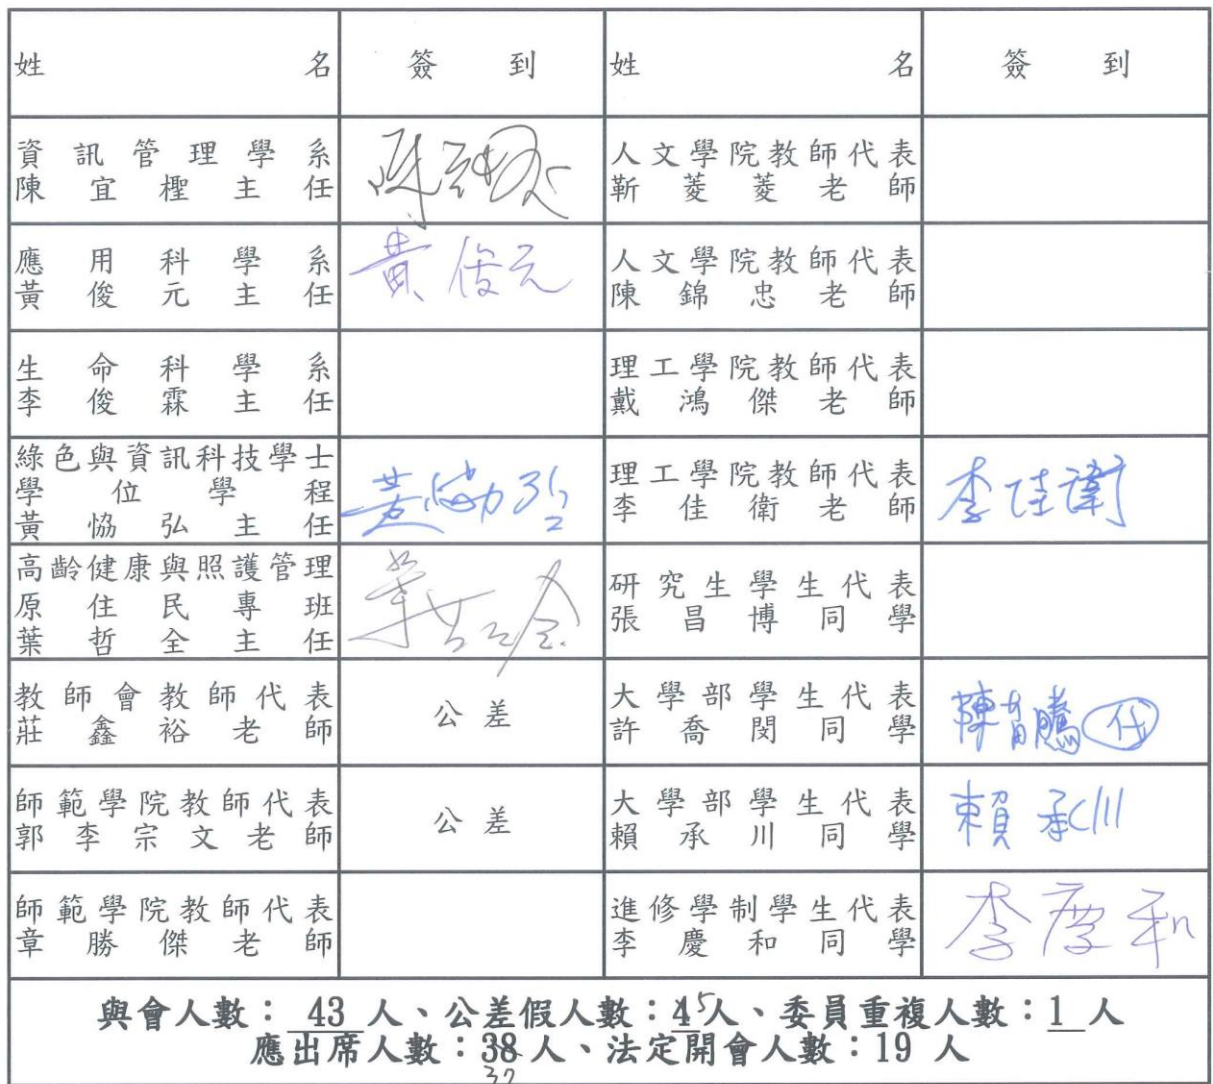 姓名 簽到 姓名 簽到
資訊管理學系
陳宜檉主任
人文學院教師代表
靳菱菱老師
應用科學系
黃俊元主任
黃俊元
人文學院教師代表
陳錦忠老師
生命科學系
李俊霖主任
理工學院教師代表
戴鴻傑老師
綠色與資訊科技學士
學位學程
黃恊弘主任
理工學院教師代表
李佳衛老師
李佳衛
高齡健康與照護管理
原住民專班
葉哲全主任
葉哲全
研究生學生代表
張昌博同學
教師會教師代表
莊鑫裕老師
公差
大學部學生代表
許喬閔同學
代
師範學院教師代表
郭李宗文老師
公差
大學部學生代表
賴承川同學
賴承川
師範學院教師代表
章勝傑老師
進修學制學生代表
李慶和同學
李慶和
與會人數：43人、公差假人數：4 5人、委員重複人數：1人
應出席人數：38人、法定開會人數：19 人
37